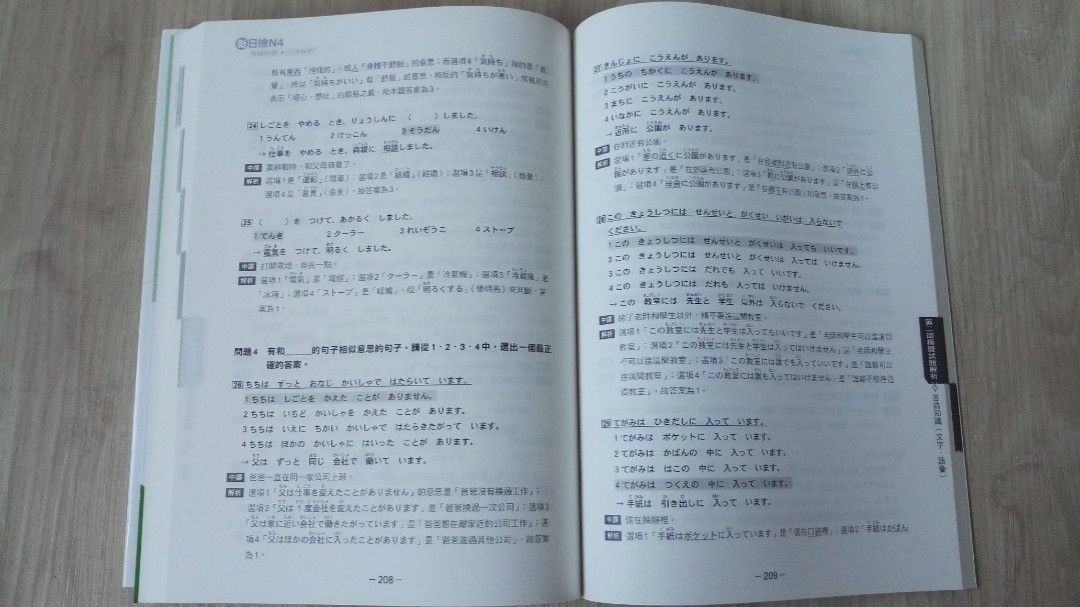 新日檢N4
就有東西「怪怪的」、或人「身體不舒服」的意思；而選項4「気持ち」指的是「感
覺」，所以「気持ちがいい」有「舒服」的意思，相反的「気持ちが悪い」
表示「噁心、想吐」的嚴格之義，故本題答案為3。
24 しごとを やめる とき、りょうしんに （ ）しました。
1 うんてん 2 けっこん 3 そうだん 4 いけん
→ 仕事を やめる とき、両親に 相談しました。
中譯 要辭職時，和父母商量了。
解析 選項1是「運転」（開車）；選項2是「結婚」（結婚）；選項3是「相談」（商量）；
選項4是「意見」（意見），故答案為3。
25 （ ）を つけて、あかるく しました。
1 でんき 2 クーラー 3 れいぞうこ 4 ストーブ
→ 電気を つけて、明るく しました。
中譯 打開電燈，弄亮一點。
解析 選項1「電気」是「電燈」；選項2「クーラー」是「冷氣機」；選項3「冷蔵庫」是
「冰箱」；選項4「ストーブ」是「暖爐」，從「明るくする」（使明亮）來判斷，答
案為1。
問題4 有和＿＿＿的句子相似意思的句子。請從1・2・3・4中，選出一個最正
確的答案。
26 ちちは ずっと おなじ かいしゃで はたらいて います。
1 ちちは しごとを かえた ことが ありません。
2 ちちは いちど かいしゃを かえた ことが あります。
3 ちちは いえに ちかい かいしゃで はたらきたがって います。
4 ちちは ほかの かいしゃに はいった ことが あります。
→ 父は ずっと 同じ 会社で 働いて います。
中譯 爸爸一直在同一家公司上班。
解析 選項1「父は仕事を変えたことがありません」的意思是「爸爸沒有換過工作」；
選項2「父は1度会社を変えたことがあります」是「爸爸換過一次公司」；選項3
「父は家に近い会社で働きたがっています」是「爸爸想在離家近的公司工作」；選
項4「父はほかの会社に入ったことがあります」是「爸爸進過其他公司」，故答案
為1。
－208－
27 きんじょに こうえんが あります。
1 うちの ちかくに こうえんが あります。
2 こうがいに こうえんが あります。
3 まちに こうえんが あります。
4 いなかに こうえんが あります。
→ 近所に 公園が あります。
中譯 在附近有公園。
解析 選項1「家の近くに公園があります」是「在我家附近有公園」；選項2「郊外に公
園があります」是「在郊區有公園」；選項3「町に公園があります」是「在鎮上有公
園」；選項4「田舎に公園があります」是「在鄉下有公園」的意思，故答案為1。
28 この きょうしつには せんせいと がくせい いがいは 入らないで
ください。
1 この きょうしつには せんせいと がくせいは 入っても いいです。
2 この きょうしつには せんせいと がくせいは 入っては いけません。
3 この きょうしつには だれでも 入って いいです。
4 この きょうしつには だれも 入って はいけません。
→ この 教室には 先生と 学生 以外は 入らないで ください。
中譯 除了老師和學生以外，請不要進這間教室。
解析 選項1「この教室には先生と学生は入ってもいいです」是「老師和學生可以進這間
教室」；選項2「この教室には先生と学生は入ってはいけません」是「老師和學生
不可以進這間教室」；選項3「この教室には誰でも入っていいです」是「誰都可以
進這間教室」；選項4「この教室には誰も入ってはいけません」是「誰都不能進這
間教室」，故答案為1。
29 てがみは ひきだしに 入って います。
1 てがみは ポケットに 入って います。
2 てがみは かばんの 中に 入って います。
3 てがみは はこの 中に 入って います。
4 てがみは つくえの 中に 入って います。
→ 手紙は 引き出しに 入って います。
中譯 信在抽屜裡。
解析 選項1「手紙はポケットに入っています」是「信在口袋裡」；選項2「手紙はかばん
－209－
第二回模擬試題解析
言語知識（文字・語彙）